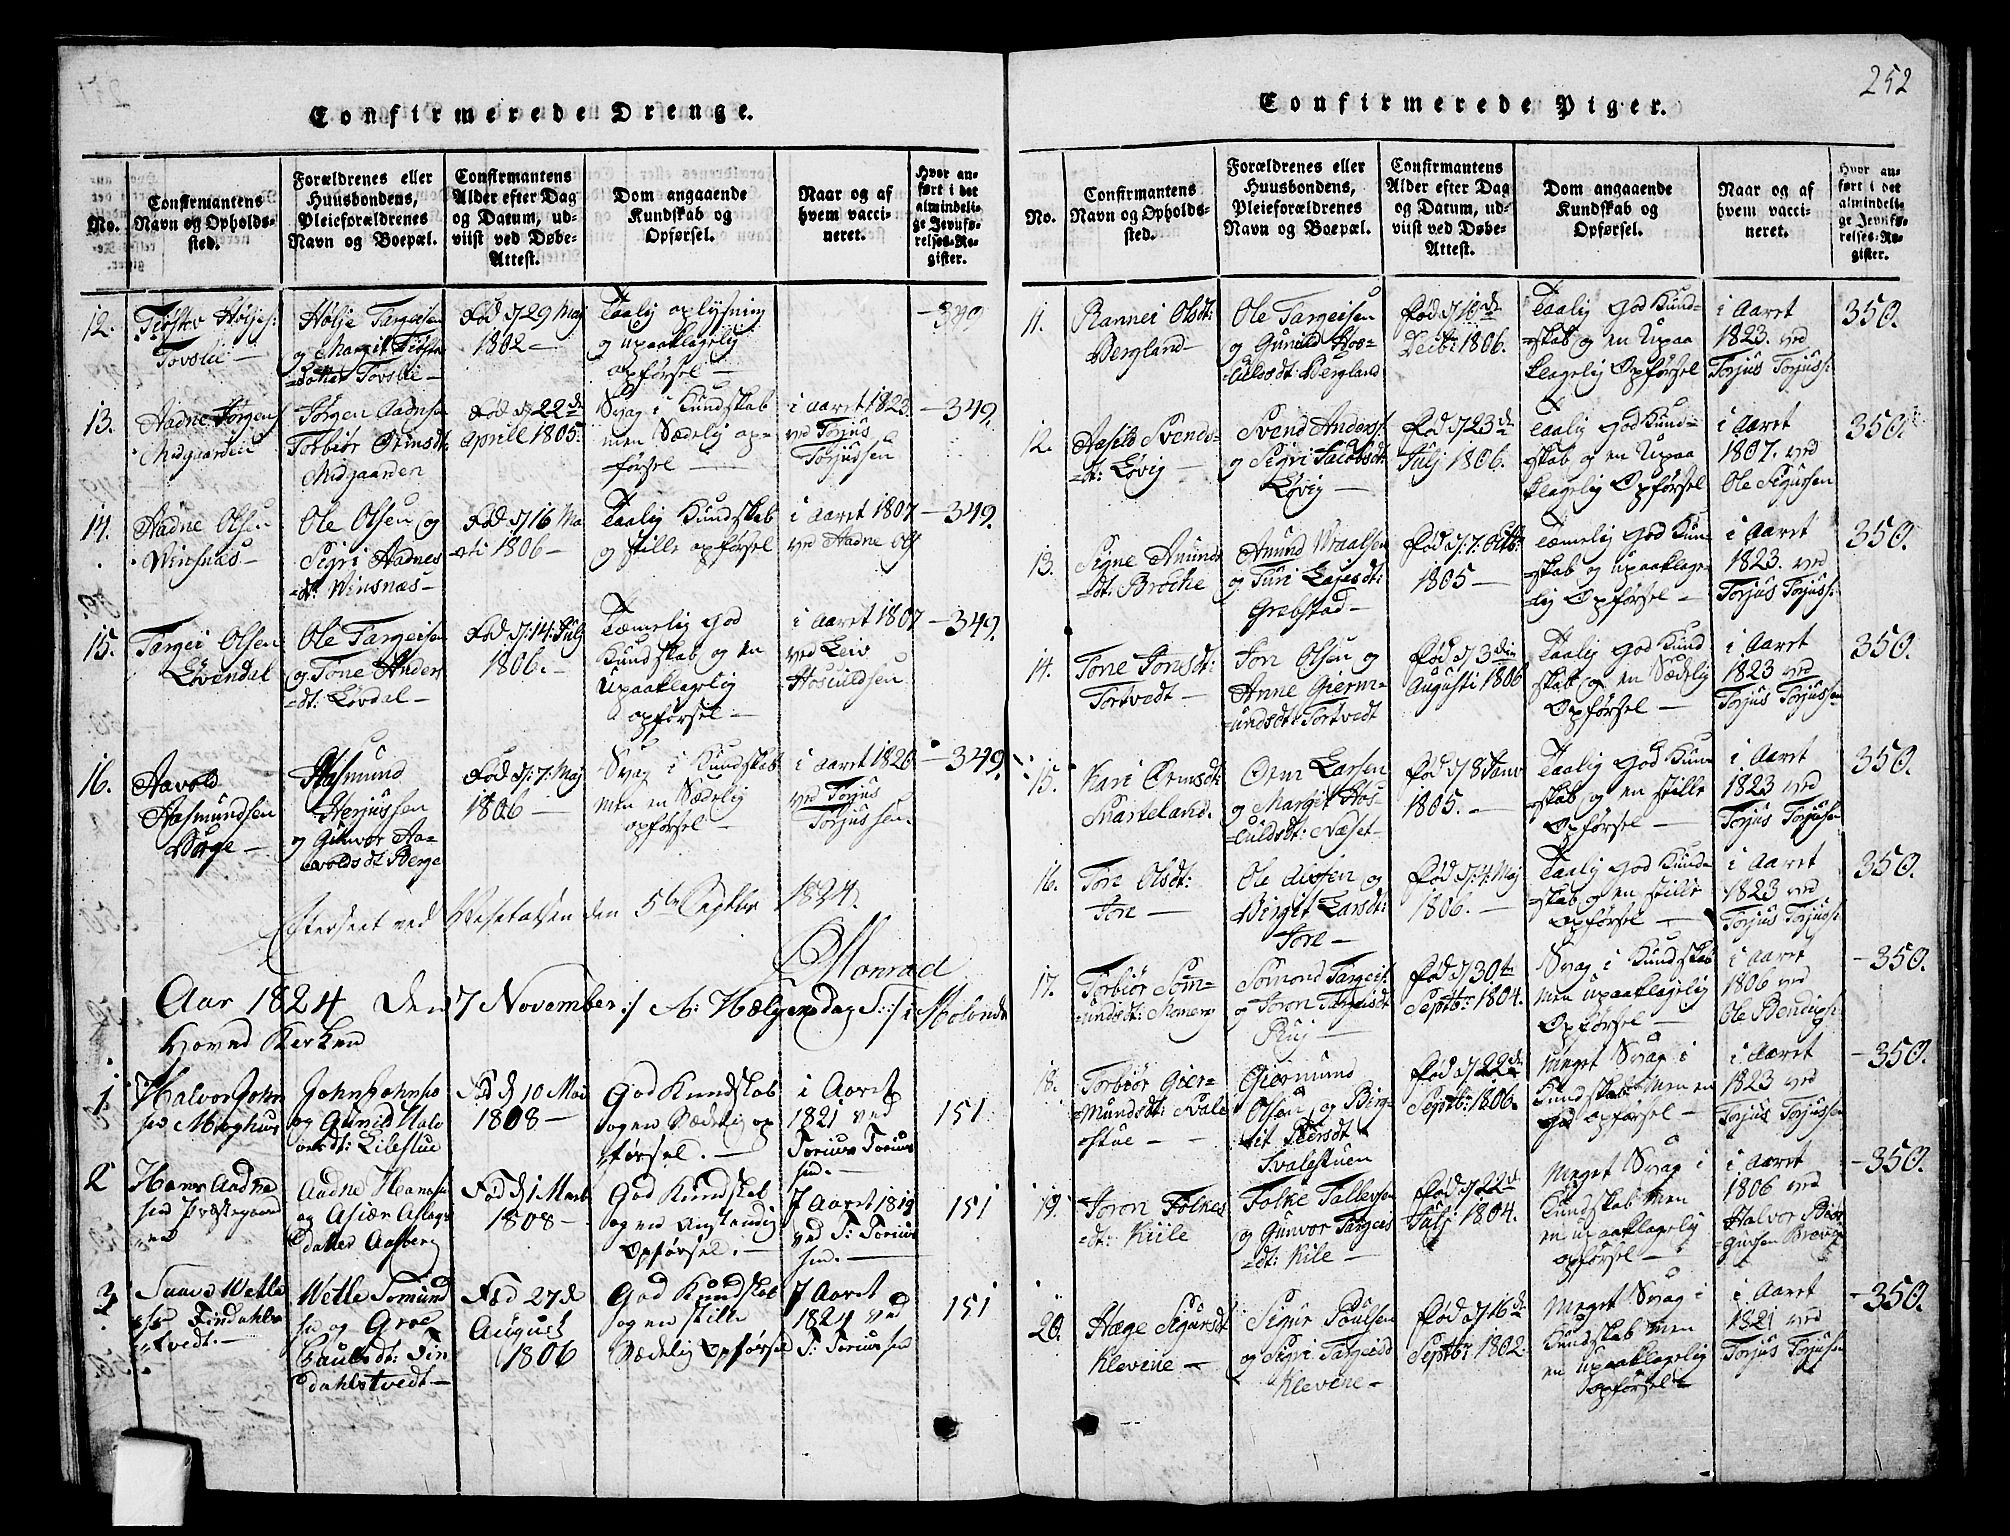 252
Confirmerede Drenge.
No.
Confirmantens
Navn og Opholds-
sted.
Forældrenes eller
Huusbondens,
Pleieforældrenes
Navn og Boepæl.
Confirmantens
Alder efter Dag
og Datum, ud-
viist ved Døbe-
Attest.
Dom angaaende
Kundskab og
Opførsel.
Naar og af
hvem vacci-
neret.
Hvor an-
ført i det
almindeli-
ge Jevnfø-
relses-Re-
gister.
12.
Tovslii
Holje Targeisen
og Margit
Tovslii
Fød d: 29 Maj
1802
Taalig oplysning
og upaaklagelig
opførsel
349
13.
Aadne Jørgens
Midgaarden
Jørgen Aadnsen
Torbiør Ormsdt:
Midgaarden
Fød d: 22de
Aprill 1805.
Svag i Kundskab
men Sædelig op-
førsel
i Aaret 1823.
ved Torjus
Torjussen
349.
14.
Aadne Olsen
Winsnæs
Ole Olsen og
Sigri Aadnes
dt: Winsnæs
Fød d: 16 Ma
1806
Taalig Kundskab
og stille opførsel
i Aaret 1807
ved Aadne
349.
15.
Targei Olsen
Løvendal
Ole Targeisen
og Tone Anders
dt: Løvdal
Fød d: 14: Julj
1806.
Tæmelig god
Kundskab og en
upaaklagelig
opførsel
i Aaret 1807
ved Leiv
Hosculdsen
349.
16.
Aavold
Aasmundsen
Berge
Aasmund
Herjussen
og Gunvor Aa-
voldsdt Berge
Fød d: 7. Maj
1806
Svag i Kundskab
men en Sædelig
opførsel
i Aaret 1820
ved Torjus
Torjussen.
349.
Efterseet ved Visitatsen den 5te Septbr 1824.
Monrad
Aar 1824 Den 7 November :/ A: Hælgensdag :/ i Molands
Hoved Kirken
1
Halvor John
sen Moghus
John Johnsen
og Gunild Halv
orsdt: Lilestue
Fød d 10 Mai
1808
God Kundskab
og en Sædelig op
førsel.
i Aaret
1821 ved
Torius Torius
sen.
151
2
Hans Aadne
sen Præstegaard
en
Aadne Hanssen
og Asiær Aslags
datter Aasberg
Fød d 1 Marts
1808
God Kundskab
og en Anstændig
Opførsel.
J Aaret 1819
ved T: Torius
sen.
151
3
Findahls
tvedt.
Wetle Tomund
sen og Groe
Paulsdt: Fin
dahlstvedt
Fød 27 d
August
1806
God Kundskab
og en stille
Sædelig Opførsel
J Aaret
1824 ved
T: Toriussen
151
Confirmerede Piger.
No.
Confirmantens
Navn og Opholds-
sted.
Forældrenes eller
Huusbondens,
Pleieforældrenes
Navn og Boepæl.
Confirmantens
Alder efter Dag
og Datum, ud-
viist ved Døbe-
Attest.
Dom angaaende
Kundskab og
Opførsel.
Naar og af
hvem vacci-
neret.
Hvor an-
ført i det
almindeli-
ge Jevnfø-
relses-Re-
gister.
11.
Rannei Olsdt:
Bergland
Ole Targeisen
og Gunild Hos-
culdsdt: Bergland
Fød d: 10de
Decbr: 1806.
Taalig god Kund-
skab og en Upaa
klagelig Opførsel
i Aaret
1823. ved
Torjus Torjuss:
350.
12.
Aasild Svends-
dt: Løvig
Svend Anders
og Sigri Jacobsdt:
Løvig
Fød d 23de
Julj 1806.
Taalig god Kund-
skab og en Upaa
klagelig Opførsel
i Aaret
1807. ved
Ole Sigursen
350.
13.
Signe Amunds
dt: Brøche
Amund Vraalsen
og Turi
Grøbstad
Fød d: 7. Octb:
1805
Tæmelig god Kun
skab og upaaklage-
lig Opførsel
i Aaret
1823. ved
Torjus Torjuss:
350.
14.
Tone Jonsdt:
Tortvedt
Jon Olsen og
Anne Gierm-
undsdt: Tortvedt
Fød d 3die
Augusti 1806
Taalig god Kund
skab og en Sædelig
Opførsel
i Aaret
1823 ved
Torjus Torjussen
350.
15.
Kari Ormsdt:
Smarteland.
Orm Larsen
og Margit Hos-
culdsdt: Næset
Fød d 8 Janv
1805.
Taalig god Kun
skab og en stille
Opførsel
i Aaret
1823 ved
Torjus Torjussen
350.
16.
Jore Olsdt:
Jore
Ole Austen og
Birgit Larsdt:
Jore
Fød d: 4: Maj
1806.
Taalig god Kund-
skab og en stille
Opførsel
i Aaret
1823 ved
Torjus Torjuss:
350.
17.
Torbiør Som-
undsdt:
Somond Targeis
og Joron Targeisdt
Ruj
Fød d 30te
Septbr: 1804.
Svag i Kundskab
men upaaklagelig
Opførsel
i Aaret
1806 ved
Ole Bendixs:
350.
18.
Torbiør Gier-
mundsdt: Svale
stue
Giermund
Olsen og Bir-
git Piersdt
Svalestuen
Fød d 22de
Septbr: 1806.
Meget Svag i
Kundskab men en
god opførsel
i Aaret
1823 ved
Torjus Torjussen
350.
19.
Joron Folkes
dt: Kiile
Folke Tallevsen
og Gunvor Targeis
dt: Kiile
Fød d 22d.
Julj 1804.
Meget Svag i
Kundskab men
en upaaklagelig
opførsel
i Aaret
1806 ved
Halvor
350.
20.
Hæge Sigursdt
Klevene
Sigur Poulsen
og Sigri Targeisd
Klevene
Fød d 16de
Septbr 1802.
Meget Svag i
Kundskab men
en upaaklagelig
opførsel
i Aaret
1821 ved
Torjus Torjussen
350.